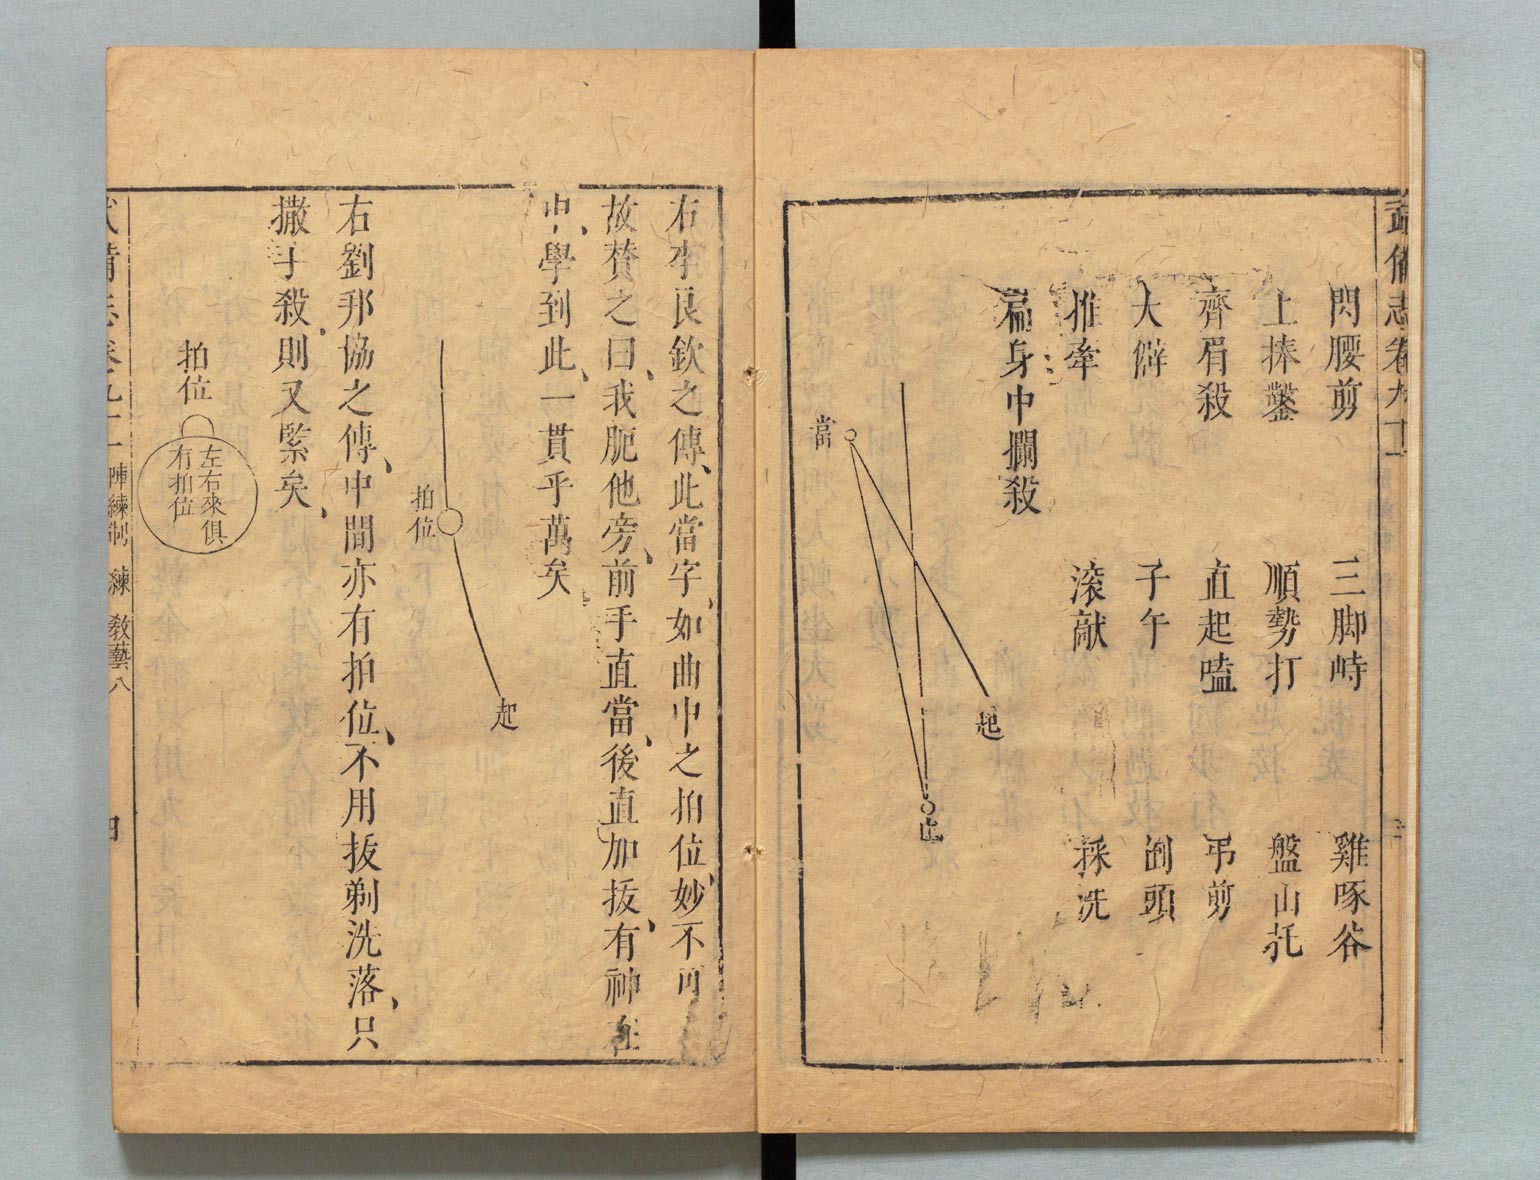 武備志卷九十一
閃腰剪 三脚峙 雞啄谷
上捧鑿 順勢打 盤山托
齊眉殺 直起嗑 弔剪
大僻 子午 倒頭
推牽 滚献 採洗
扁身中攔殺
起
止
當
右李良欽之傳、此當字、如曲中之拍位、妙不可
故賛之曰、我厄他旁、前手直當、後直加拔、有神在
中、學到此、一貫乎萬矣
起
拍位
右劉邦協之傳、中間亦有拍位、不用拔剃洗落、只
撒手殺、則又緊矣、
拍位
左右來俱
有拍位
武備志卷九十一 陣練制 練 教藝八 四